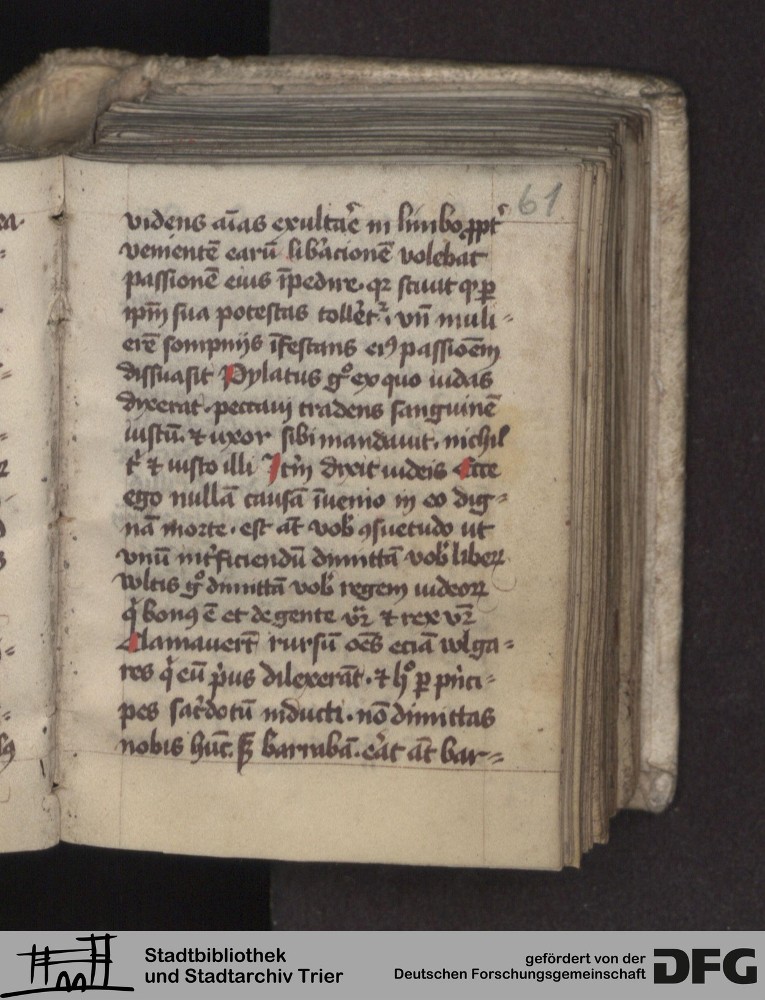 61
videns aīas exultaꝛ̄e in limbo ꝓpt̾
vementē earū lib̾acionē volebat
passionē eius īpedire. qꝛ sciuit qꝫ ꝑ
ip̄m sua potestas toll̾et᷑. vn̄ muli-
erē sompnijs īfestans eiꝰ passioēm
dissuasit Pylatus gͦ ex quo iudas
dixerat. peccaui tradens sanguinē
iustū. ⁊ uxor sibi mandauit. nichil
t̾ ⁊ iusto illi Itm̄ dixit iudeis Ecce
ego nullā causā īuenio in eo dig-
nā morte. est aūt vob̾ ꝯsuetudo ut
vnū int̾ficiendū dimittā vob̾ liberꝝ
vultis gͦ dimittā vob̾ regem iudeoꝝ
qi bonꝰ ē et de gente vr̄a ⁊ rex vr̄
Clamauer̄t rursū oēs eciā wlga-
res qi eū pi̾us dilexerāt. ⁊ hͦ ꝑ pi̾nci-
pes sac̾dotū inducti. nō dimittas
nobis hūc. sꝫ barrabā. er̾at aūt bar-
Stadtbibliothek
und Stadtarchiv Trier
gefördert von der
Deutschen Forschungsgemeinschaft
DFG